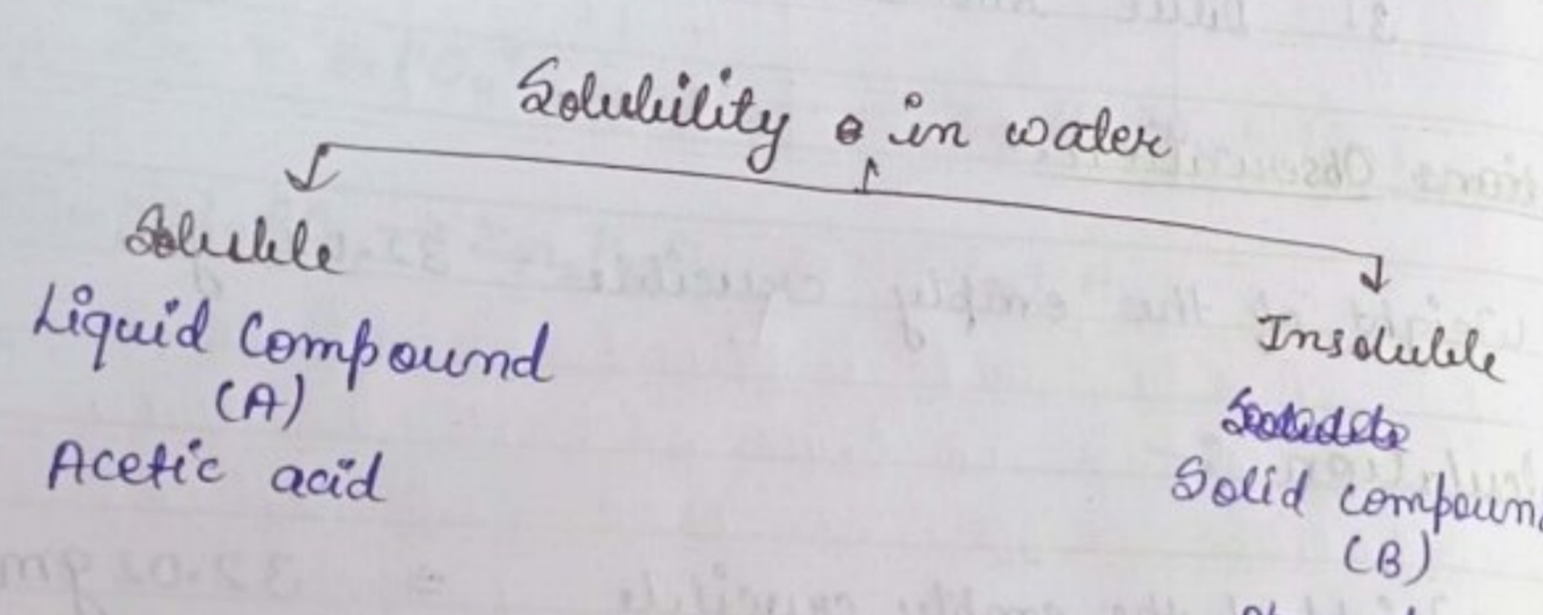 Solubility in water
Soluble
Liquid Compound
(A)
Acetic acid
Insoluble
Solid compoun
(B)